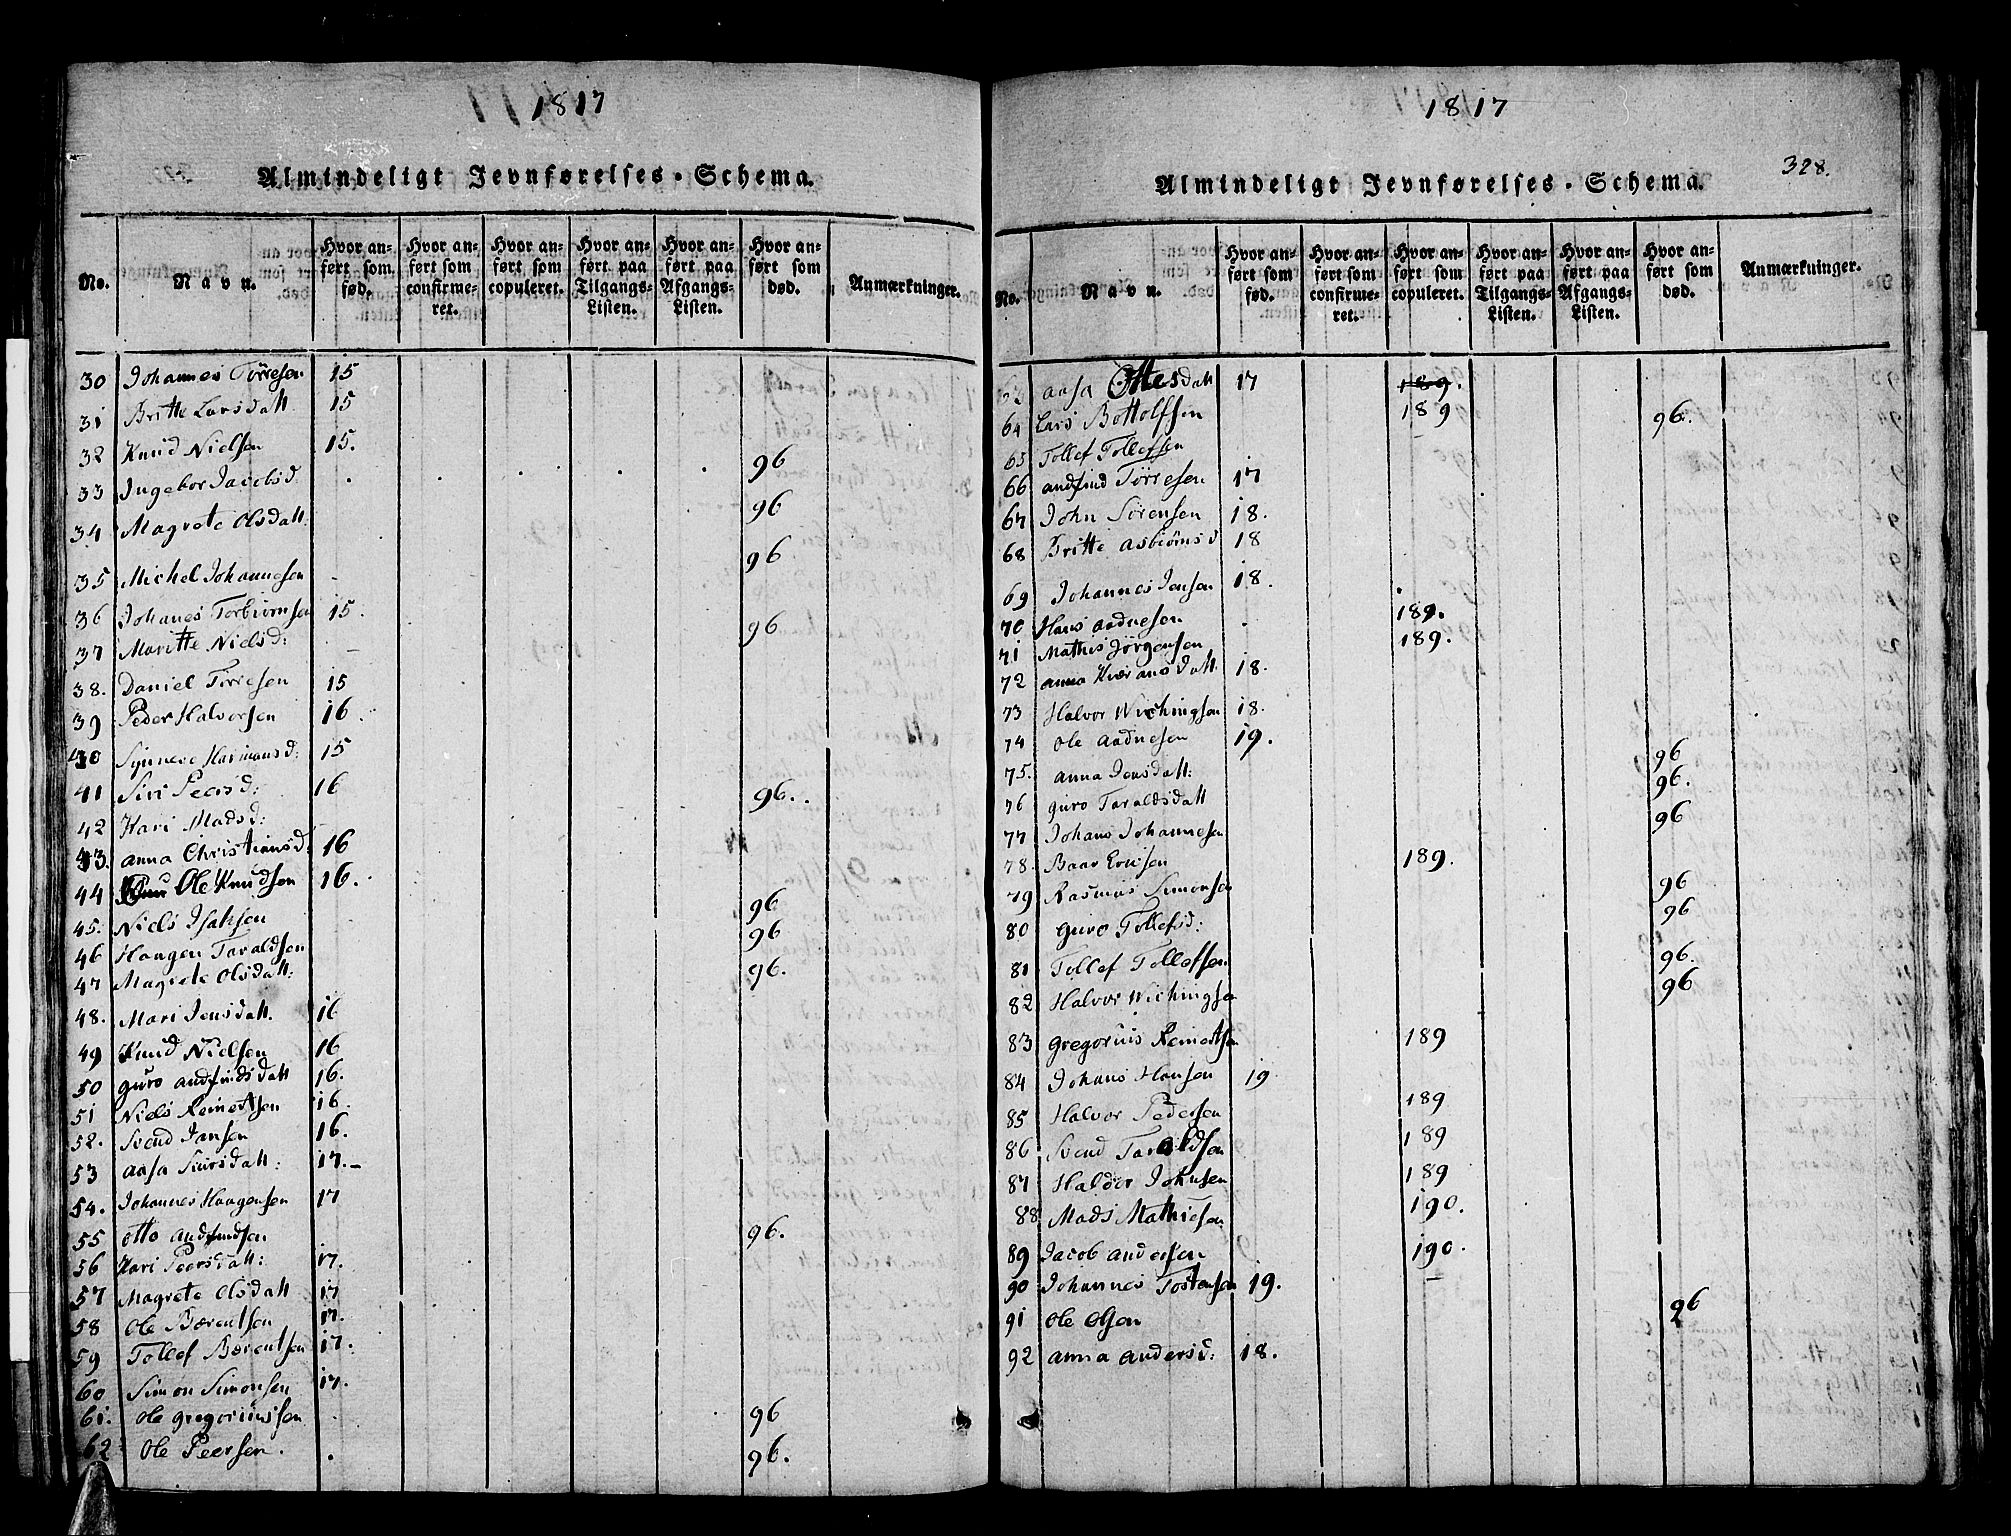 1817
Almindeligt Jevnførelses-Schema.
No. Navn. Hvor anført som fød. Hvor anført som confirmeret. Hvor anført som copuleret. Hvor anført paa Tilgangs-Listen. Hvor anført paa Afgangs-Listen. Hvor anført som død. Anmærkninger.
30 Johannes Törresen 15
31 Britte Larsdatt 15
32 Knud Nielsen 15.
33 Ingebor Jacobsd 96
34 Magrete Olsdatt 96
35 Michel Johannesen 96
36 Johanes Torbiörnsen 15.
37 Maritte Nielsd: 96
38. Daniel Törresen 15
39 Peder Halvorsen 16.
40 Synneve Harmansd: 15
41 Siri Peersd: 16
42 Kari Madsd: 96.
43. Anna Christiansd: 16
44 Ole Knudsen 16.
45. Niels Isaksen 96
46 Haagen Taraldsen 96
47 Magrete Olsdatt: 96.
48. Mari Jensdatt. 16
49 Knud Nielsen 16
50 Guro Andfindsdatt 16.
51 Niels Reinertsen 16.
52. Svend Jansen 16.
53 Aasa Siursdatt: 17.
54. Johannes Haagensen 17
55 Otto Andfindsen 96.
56 Kari Peersdatt: 17.
57 Magrete Olsdatt 17
58 Ole Bærentsen 17.
59 Tollef Bærentsen 17.
60 Simon Simonsen 17.
61. Ole Gregoriussen 96
62 Ole Peersen. 96.
1817
328.
Almindeligt Jevnførelses-Schema.
No. Navn. Hvor anført som fød. Hvor anført som confirmeret. Hvor anført som copuleret. Hvor anført paa Tilgangs-Listen. Hvor anført paa Afgangs-Listen. Hvor anført som død. Anmærkninger.
Aasa Ottesdatt 17 189.
64 Lars Bottolfsen 189
65 Tollef Tollefsen 96.
66 Andfind Törresen 17
67 John Sörensen 18.
68 Britte Asbiörnsd 18
69 Johannes Jensen 18.
70 Hans Aadnesen 189.
71 Mathis Jörgensen 189.
72 Anna datt. 18.
73 Halvor Wichingsen 18.
74 Ole Aadnesen 19.
75. Anna Jensdatt: 96
76 Guro Taraldsdatt 96.
77 Johans Johannesen 96
78. Baar Erissen 189.
79 Rasmus Simonsen 96
80 Guro Tollefsd: 96
81 Tollef Tollefsen 96.
82 Halvor Wichingsen 96
83 Gregorius Reinertsen 189
84 Johans Hansen 19
85 Halvor Pedersen 189
86 Svend Taraldsen 189
87 Haldor Johnsen 189
88 Mads Mathiesen 190.
89 Jacob Andersen 190.
90 Johannes Tostensen 19.
91 Ole Olsen 96
92 Anna Andersd: 18.